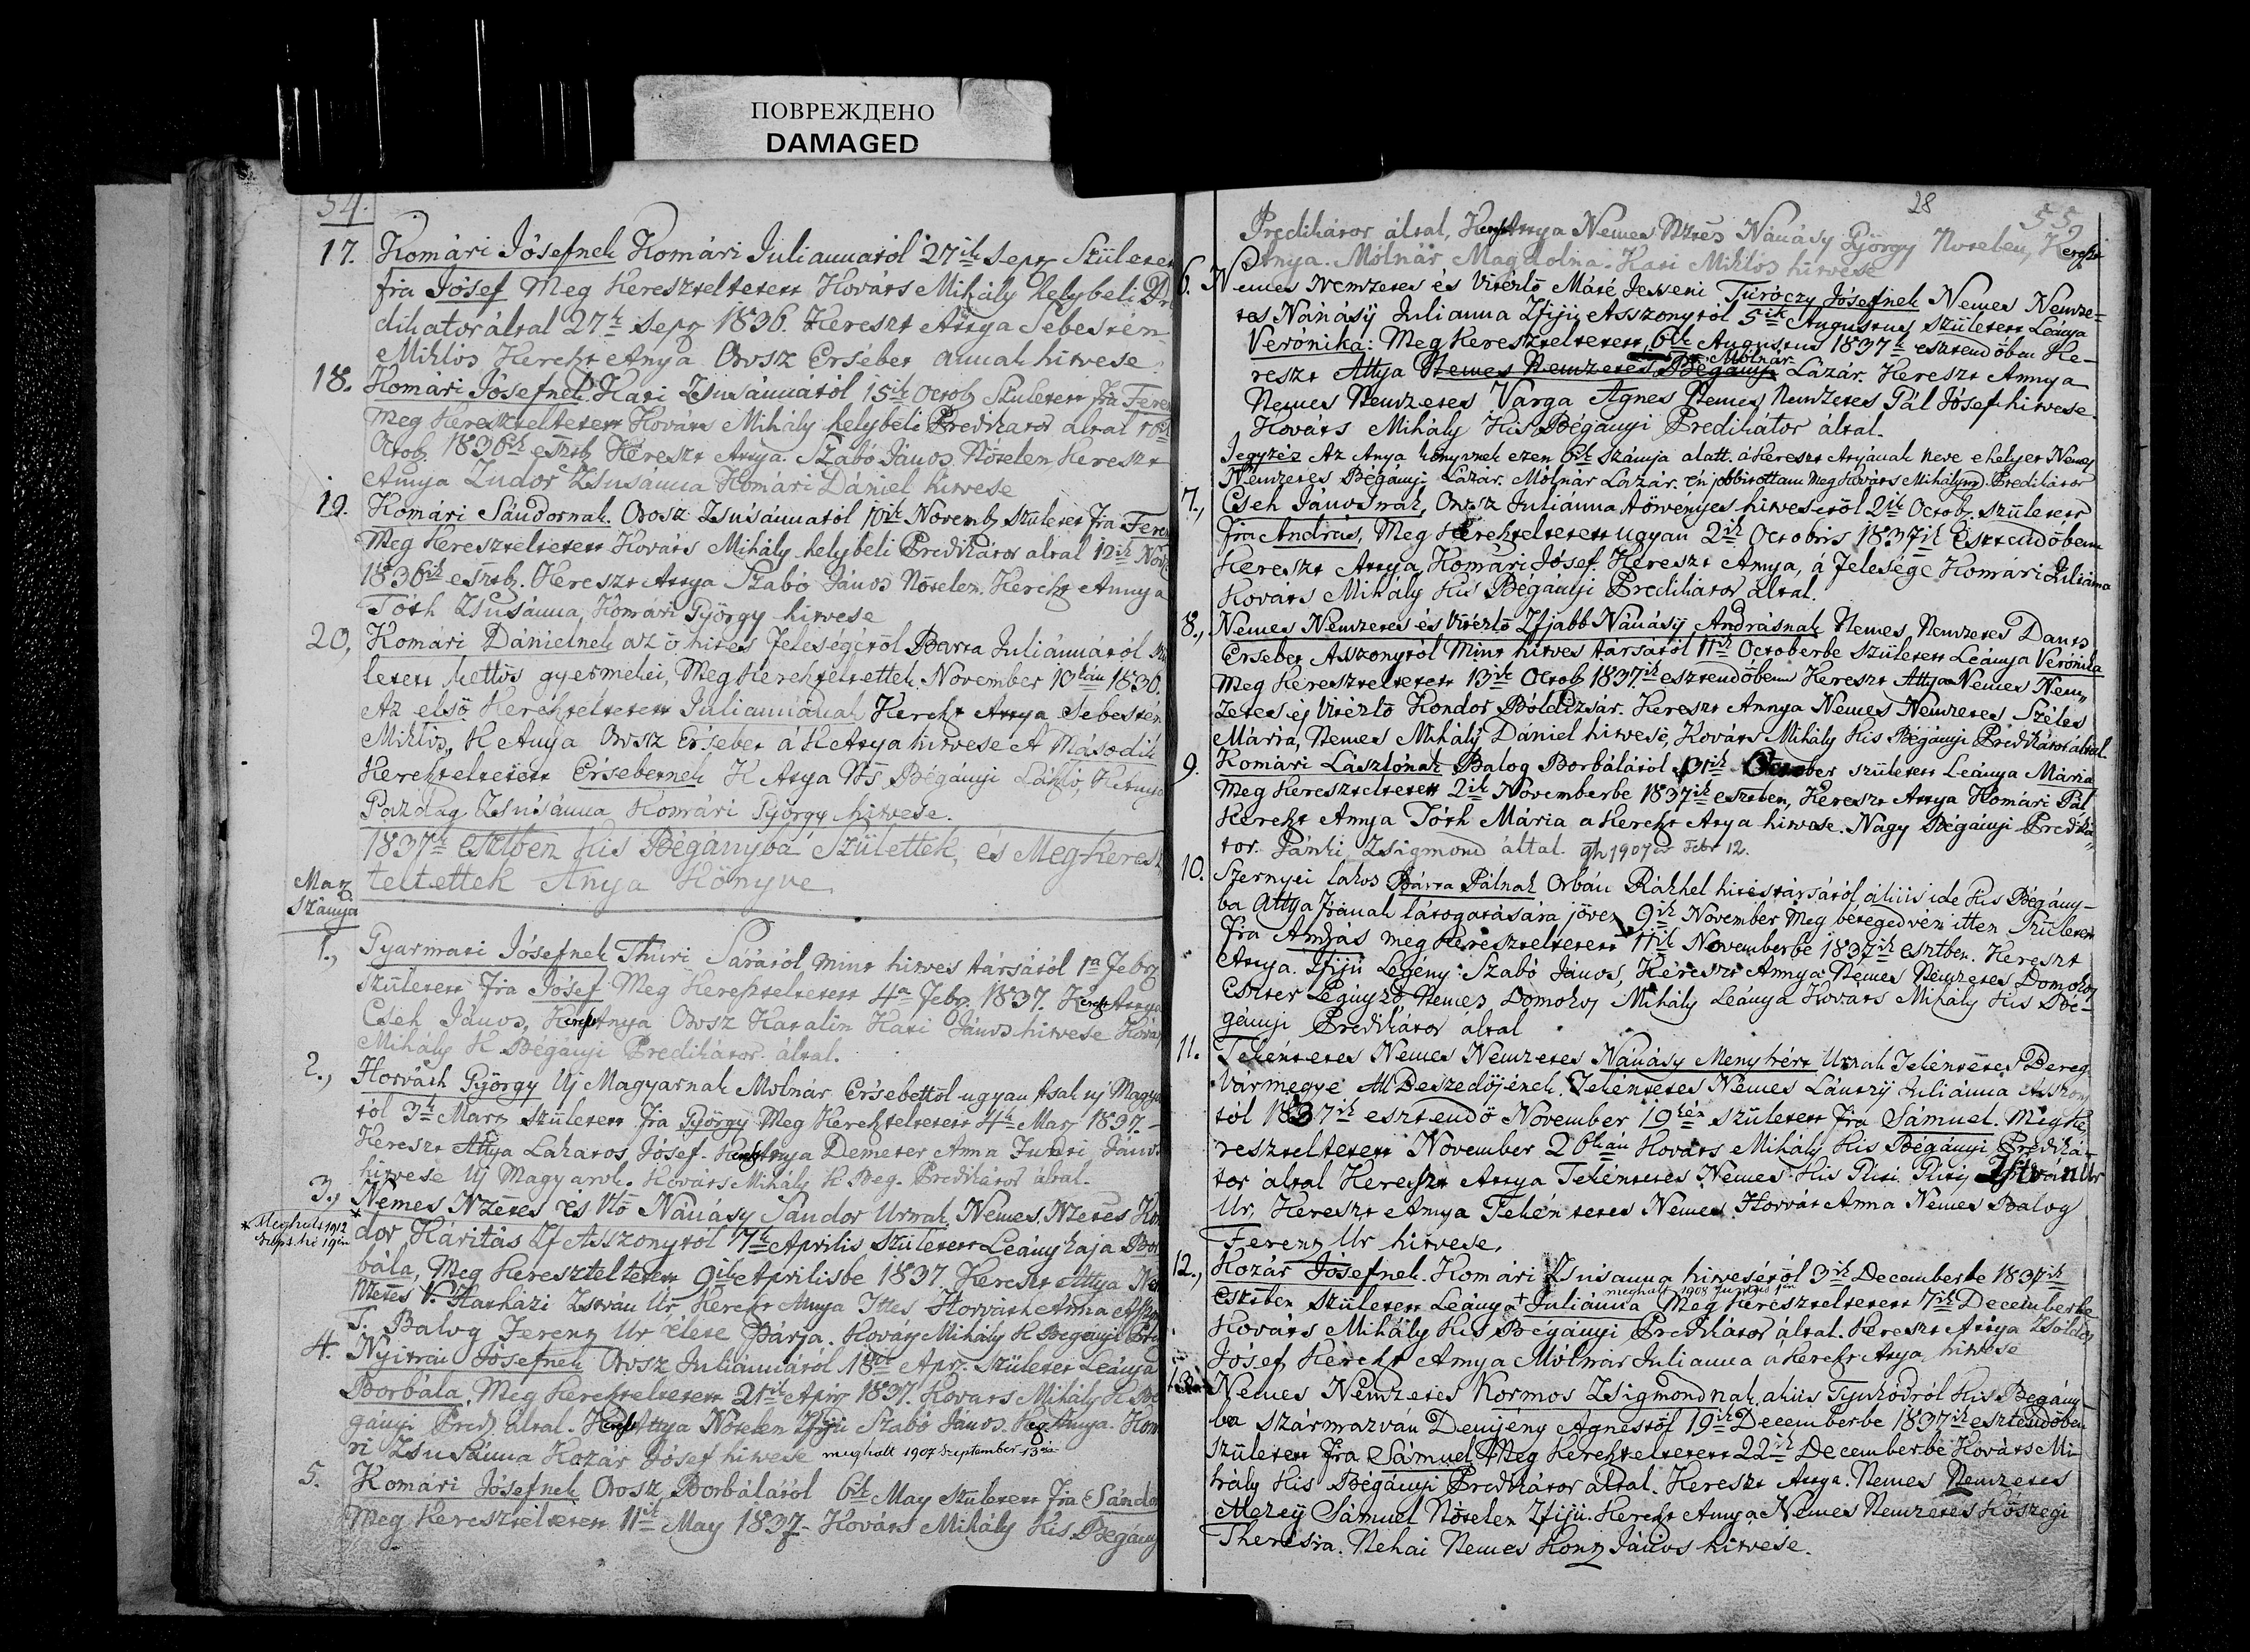 ПОВРЕЖДЕНО
DAMAGED
54.
17. Komári Jósefnek Komári Juliannaról 27ik Sepr. Születen
fia Jósef Meg Kereszteltetett Kováts Mihály helybeli Pr
dikator által 27k Sepr 1836. Kereszt Attya Sebestén
Miklós Kereszt Anya Orosz Ersébet annak hitvese
18. Komári Jósefnek Kati Zsusánnaról 15ik Octob Született fia Feren
Meg Kereszteltetett Kováts Mihály helybeli Predikator által
Octob. 1836ik esztb. Kereszt Attya. Szabó János Nőtelen Kereszt
Annya Zudor Zsusánna Komári Dániel hitvese
19. Komári Sándornak. Orosz Zsusánnaról 10ik Novemb. született fia Feren
Meg Kereszteltetett Kováts Mihály helybeli Predikátor által 12ik Nov
1836ik esztb. Kereszt Attya Szabó János Nőtelen. Kereszt Annya
Tóth Zsusánna, Komári György hitvese
20, Komári Dánielnek az ő hites feleségéről Barta Juliánnáról
letett kettős gyermekei, Meg Kereszteltettek November 10kán 1836.
Az első Kereszteltetett Juliannának Kereszt Attya Sebestén
Miklós, K Anya Orosz Ersébet á K Atya hitvese A Második
Kereszteltetett Ersébetnek K Atya Ns Bégányi László, K Anya
Pazdag Zsusánna Komári György hitvese.
1837k esztben Kis Bégányba Születtek, és Meg-Keresz
teltettek Anya Könyve
száma
1., Gyarmati Jósefnek Thúri Sáráról mint hitves társáról 1a Febr.
született fia Jósef Meg Kereszteltetett 4a Febr. 1837. Kereszt Attya
Cseh János, Kereszt Anya Orosz Katalin Kati János hitvese Kováts
Mihály K Bégányi Predikátor által.
2., Horváth György Uj Magyarnak Molnár Ersébettől ugyan tsak uj Magya
tól 3k Mart. született fia György Meg Kereszteltetett 4k Mart 1837.
Kereszt Attya Lakatos Jósef. Kereszt Anya Demeter Anna János
hitvese Uj Magyarok. Kováts Mihály K Beg. Predikátor által.
3., Nemes Nzetes és Vtő Nánásy Sándor Urnak, Nemes, Nzetes Kon
* Meghalt 1912
Sept. hó 19én
* dor Káritás If Asszonytól 7k Aprilis született Leánykaja Bor
bála, Meg Kereszteltetett 9ik Aprilisbe 1837. Kereszt Attya Nem
Nzetes V. Harházi István Ur, Kereszt Anya Horváth Anna
T. Balog Ferenz Ur élete Párja. Kováts Mihály K Bégányi Pre
4. Nyitrai Jósefnek Orosz Juliánnáról 18ik Apr. született Leánya
Borbála, Meg Kereszteltetett 21ik Apr 1837. Kováts Mihály K Bé
gányi Pred által. Kereszt Attya Nőtelen Ifjú Szabó János. Kereszt Annya. Kom
ri Zsusánna Kozár Jósef hitvese meghalt 1907 September 13án
5. Komári Jósefnek Orosz Borbáláról 6ik May született fia Sándor
Meg Kereszteltetett 11ik May 1837. Kováts Mihály Kis Bégány
28
55
Predikátor által, Kereszt Attya Nemes Nztes Nánásy György Nőtelen, Kereszt
Anya. Mólnár Magdolna. Kati Miklós hitvese
6. Nemes Nemzetes és Vitézlő Máté Jesseni Turóczy Jósefnek Nemes Nemze-
tes Nánásÿ Julianna Ifijú Asszonytól 5ik Augustus született Leánya
Verónika: Meg Kereszteltetett 6ik Augustus 1837k esztendőben Ke-
Mólnár
reszt Attya Nemes Nemzetes Bégányi Lázár. Kereszt Annya
Nemes Nemzetes Varga Ágnes Nemes Nemzetes Pál Jósef hitvese
Kováts Mihály Kis Bégányi Predikátor által.
Jegyzés Az Anya könyvnek ezen 6ik száma alatt. a Kereszt Atyának neve e helyet Nemes
Nemzetes Bégányi Lázár. Mólnár Lázár. én jobbitottam meg Kováts Mihály Predikátor
7., Cseh Jánosnak, Orosz Juliánna törvényes hitvesétől 2ik Octob. született
fia András, Meg Kereszteltetett ugyan 2ik Octobris 1837ik Esztendőbenn
Kereszt Attya, Komári Jósef. Kereszt Annya, á felesége Komári Juliánna
Kováts Mihály Kis Bégányi Predikátor által.
8., Nemes Nemzetes és Vitézlő Ifjabb Nánásÿ Andrásnak Nemes Nemzetes Dants
Ersébet Asszonytól Mint hitves társától 11ik Octoberbe született Leánya Verónika
Meg Kereszteltetett 13ik Octob 1837.ik esztendőbenn Kereszt Attya Nemes Nem,,
zetes és Vitézlő Kondor Bóldizsár. Kereszt Annya Nemes Nemzetes Széles
Mária, Nemes Mihálÿ Dániel hitvese, Kováts Mihálÿ Kis Bégányi Predikátor által
9. Komári Lászlónak Balog Borbáláról 31ik October született Leánya Mária
Meg Kereszteltetett 2ik Novemberbe 1837ik esztben, Kereszt Attya Komári Pál
Kereszt Annya Tóth Mária a Kereszt Atya hitvese. Nagy Bégányi Predika
tor. Pánki Zsigmond által. gh 1907 Febr 12.
10. Szernyei lakos Bárta Pálnak Orbán Rákhel hites társától, akiis ide Kis Bégány-
ba Attya fiának látogatására jövén 9ik November Meg betegedvén itten Született
fia András meg Kereszteltetett 11ik Novemberbe 1837ik esztben. Kereszt
Attya. Ifijú Legény: Szabó János, Kereszt Annya: Nemes Nemzetes Domokos
Eszter Légÿző Nemes Domokos Mihály Leánya Kováts Mihály Kis Bé-
gányi Predikátor által
11. Tekéntetes Nemes Nemzetes Nánásy Menyhért Urnak Tekéntetes Bereg
Varmegye All Beszedőjének Tekéntetes Nemes Lántzÿ Juliánna Asszony
tól 1837ik esztendő November 19kén született fia Sámuel. Meg Ke
reszteltetett November 26kán Kováts Mihály Kis Bégányi Prediká-
tor által Kereszt Attya Tekéntetes Nemes Kis István Ur
Ur, Kereszt Annya Tekéntetes Nemes Horvát Anna Nemes Balog
Ferenz Ur hitvese,
12., Kozár Jósefnek. Komári Zsúsanna hitvesétől 3ik Decemberbe 1837ik
meghalt 1908
esztben született Leánya + Juliánna Meg Kereszteltetett 7ik Decemberbe
Kováts Mihály Kis Bégányi Predikátor által. Kereszt Attya Zsoldos
Jósef, Kereszt Annya Mólnár Julianna a Kereszt Atya hitvese
Nemes Nemzetes Kormos Zsigmondnak, akiis Tyukodról Kis Begány-
ba származván Demjény Ágnestől 19ik Decemberbe 1837ik esztendőben
született fia Sámuel Meg Kereszteltetett 22ik Decemberbe Kováts Mi-
hály Kis Bégányi Predikátor által. Kereszt Attya. Nemes Nemzetes
Mezeÿ Sámuel Nőtelen Ifijú. Kereszt Annya Nemes Nemzetes Kőszegi
Therésia. Néhai Nemes Konz János hitvese.